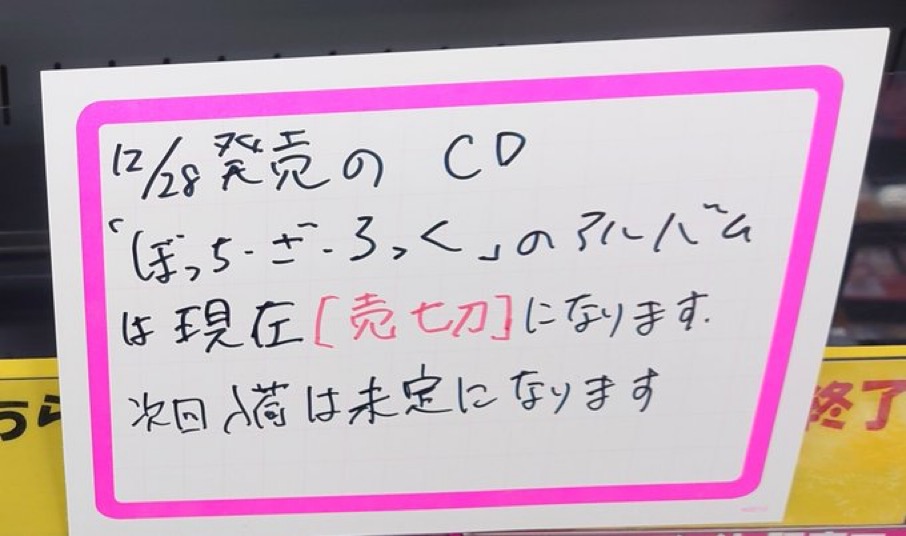 12/28発売の CD
「ぼっち・ざ・ろっく」のアルバム
は現在[売七刀]になります.
次回入荷は未定になります
終了